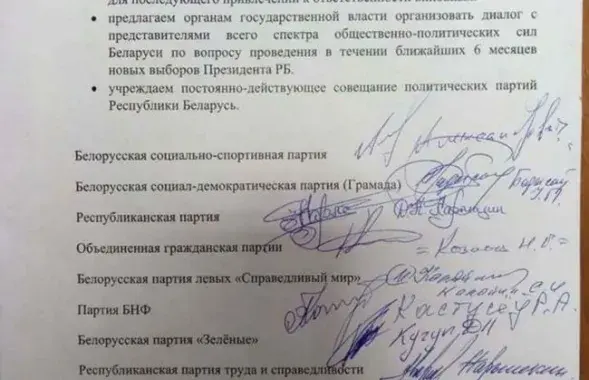 для последующего привлечения к ответственности виновных.
• предлагаем органам государственной власти организовать диалог с
представителями всего спектра общественно-политических сил
Беларуси по вопросу проведения в течении ближайших 6 месяцев
новых выборов Президента РБ.
• учреждаем постоянно-действующее совещание политических партий
Республики Беларусь.
Белорусская социально-спортивная партия
Белорусская социал-демократическая партия (Грамада)
Борисов
Республиканская партия
Объединенная гражданская партии
= Козлов Н. В =
Белорусская партия левых «Справедливый мир»
Партия БНФ
Кастусёў Р. А.
Белорусская партия «Зелёные»
Республиканская партия труда и справедливости